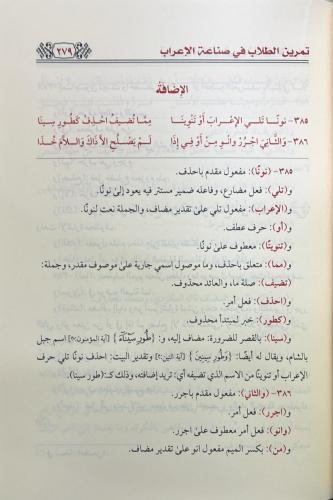 تمرين الطلاب في صناعة الإعراب
٢٧٩
الإضافة
٣٨٥- نونًا تلي الإعراب أو تنوينا مما تضيف احذف كطور سينا
٣٨٦- والثاني اجرر وانو من أو في إذا لم يصلح الا ذاك واللام خذا
٣٨٥- (نونًا): مفعول مقدم باحذف.
و(تلي): فعل مضارع، وفاعله ضمير مستتر فيه يعود إلى نونًا.
و(الإعراب): مفعول تلي على تقدير مضاف، والجملة نعت لنونًا.
و(أو): حرف عطف.
و(تنوينًا): معطوف على نونًا.
و(مما): متعلق باحذف، وما موصول اسمي جارية على موصوف مقدر، وجملة:
(تضيف): صلة ما، والعائد محذوف.
و(احذف): فعل أمر.
و(كطور): خبر لمبتدأ محذوف.
و(سينا): بالقصر للضرورة: مضاف إليه، و: {طُورِ سَيْنَاءَ} [آية المؤمنون:٢٠] اسم جبل
بالشام، ويقال له أيضًا: {وَطُورِ سِينِينَ} [آية التين:٢] وتقدير البيت: احذف نونًا تلي حرف
الإعراب أو تنوينًا من الاسم الذي تضيفه أي: تريد إضافته، وذلك كـ(طور سينا).
٣٨٦- (والثاني): مفعول مقدم باجرر.
و(اجرر): فعل أمر.
و(وانو): فعل أمر معطوف على اجرر.
و(من): بكسر الميم مفعول انو على تقدير مضاف.